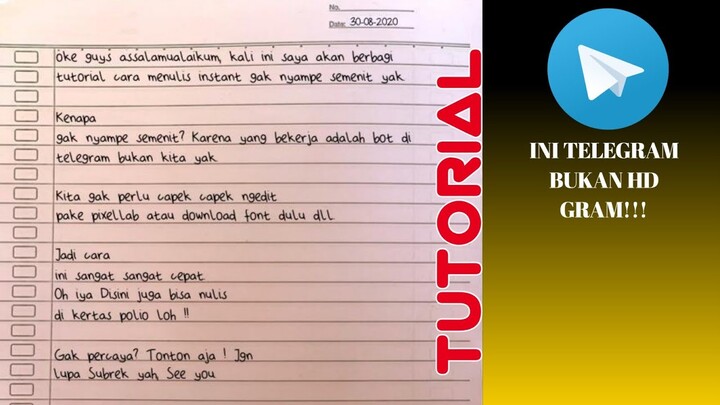 No.
Date: 30-08-2020
oke guys assalamualaikum, kali ini saya akan berbagi
tutorial cara menulis instant gak nyampe semenit yak
Kenapa
gak nyampe semenit? Karena yang bekerja adalah bot di
telegram bukan kita yak
Kita gak perlu capek capek ngedit
pake pixellab atau download font dulu dll
Jadi cara
ini sangat sangat cepat
Oh iya Disini juga bisa nulis
di kertas polio loh !!
Gak percaya? Tonton aja ! Jgn
lupa Subrek yah, See you
TUTORIAL
INI TELEGRAM
BUKAN HD
GRAM!!!